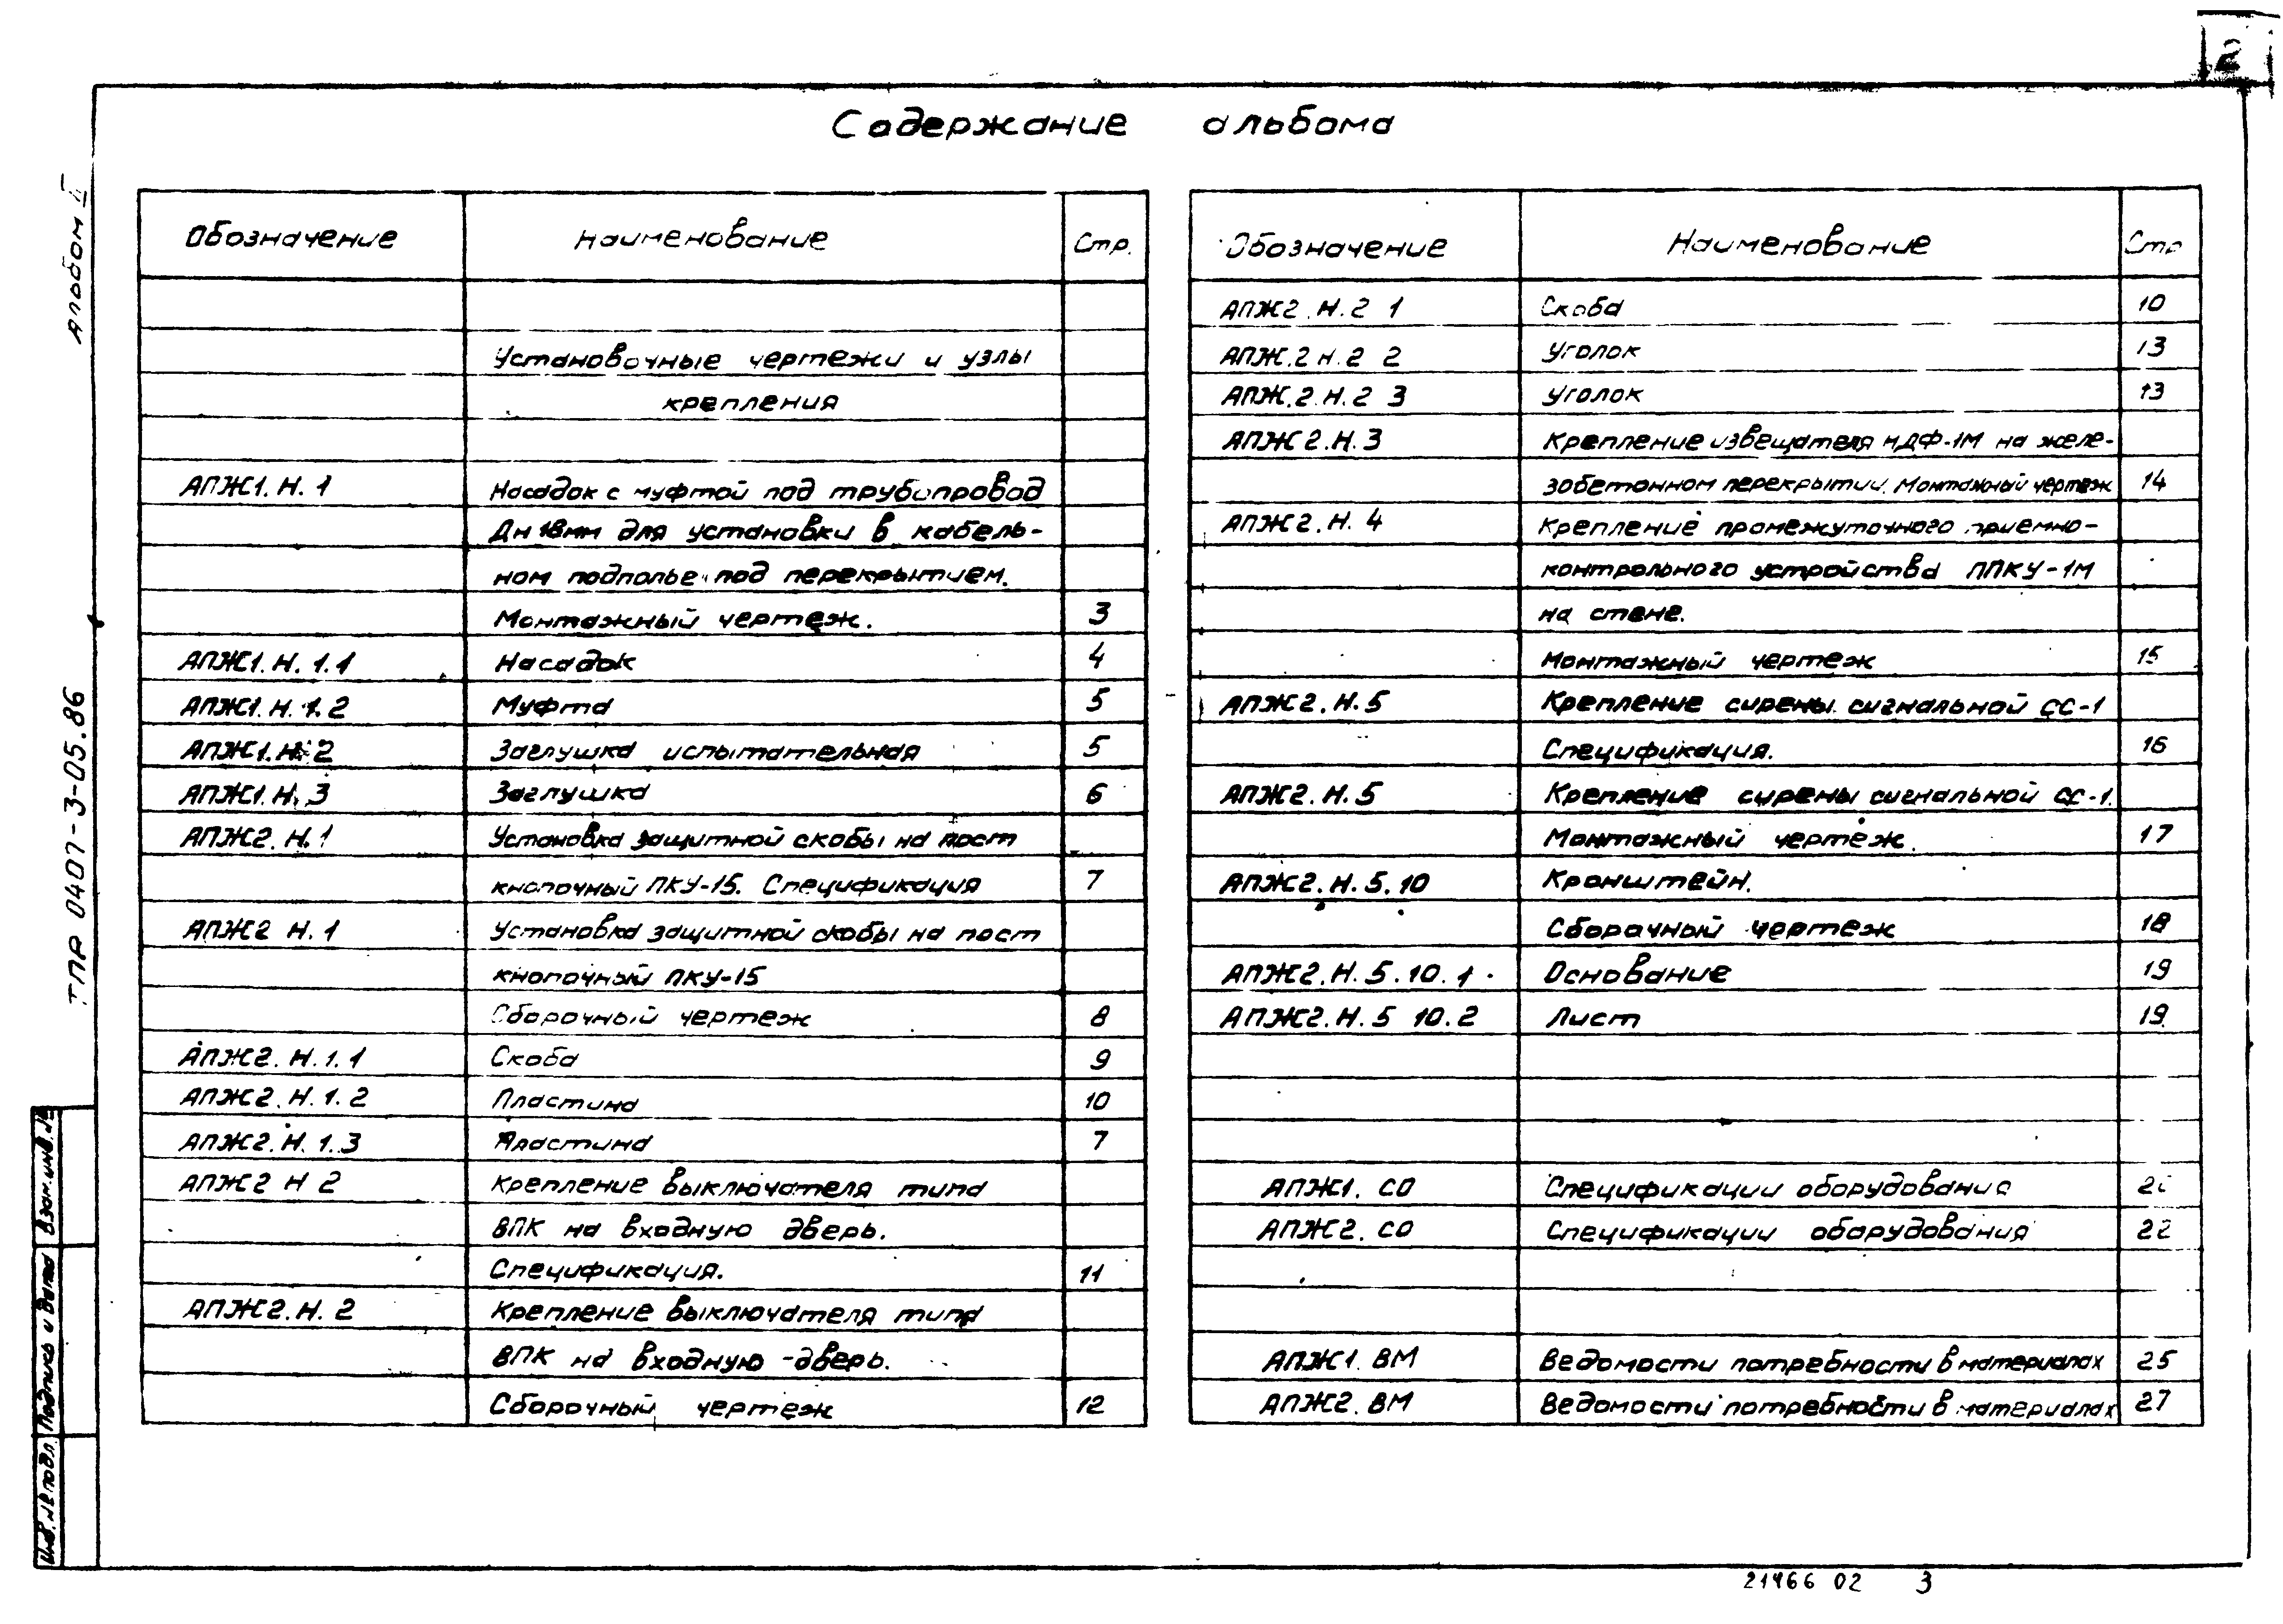 2
Содержание альбома
Обозначение Наименование Стр.
Установочные чертежи и узлы
крепления
АПЖ1.Н.1 Насадок с муфтой под трубопровод
Дн 18мм для установки в кабель-
ном подполье под перекрытием.
Монтажный чертеж. 3
АПЖ1.Н.1.1 Насадок 4
АПЖ1.Н.1.2 Муфта 5
АПЖ1.Н.2 Заглушка испытательная 5
АПЖ1.Н.3 Заглушка 6
АПЖ2.Н.1 Установка защитной скобы на пост
кнопочный ПКУ-15. Спецификация 7
АПЖ2 Н.1 Установка защитной скобы на пост
кнопочный ПКУ-15
Сборочный чертеж 8
АПЖ2.Н.1.1 Скоба 9
АПЖ2.Н.1.2 Пластина 10
АПЖ2.Н.1.3 Пластина 7
АПЖ2 Н 2 Крепление выключателя типа
ВПК на входную дверь.
Спецификация. 11
АПЖ2.Н.2 Крепление выключателя типа
ВПК на входную дверь.
Сборочный чертеж 12
Обозначение Наименование Стр
АПЖ2.Н.2 1 Скоба 10
АПЖ.2 Н.2 2 Уголок 13
АПЖ.2.Н.2 3 Уголок 13
АПЖ2.Н.3 Крепление извещателя ИДФ-1М на желе-
зобетонном перекрытии. Монтажный чертеж 14
АПЖ2.Н.4 Крепление промежуточного приемно-
контрольного устройства ППКУ-1М
на стене.
Монтажный чертеж 15
АПЖ2.Н.5 Крепление сирены сигнальной СС-1
Спецификация. 16
АПЖ2.Н.5 Крепление сирены сигнальной СС-1.
Монтажный чертеж. 17
АПЖ2.Н.5.10 Кронштейн.
Сборочный чертеж 18
АПЖ2.Н.5.10.1 Основание 19
АПЖ2.Н.5 10.2 Лист 19
АПЖ1.СО Спецификации оборудования
АПЖ2.СО Спецификации оборудования 22
АПЖ1.ВМ Ведомости потребности в материалах 25
АПЖ2.ВМ Ведомости потребности в материалах 27
Альбом II
ТПР 0407-3-05.86
Взам.инв.№
Подпись и дата
Инв.№подл.
21466 02 3